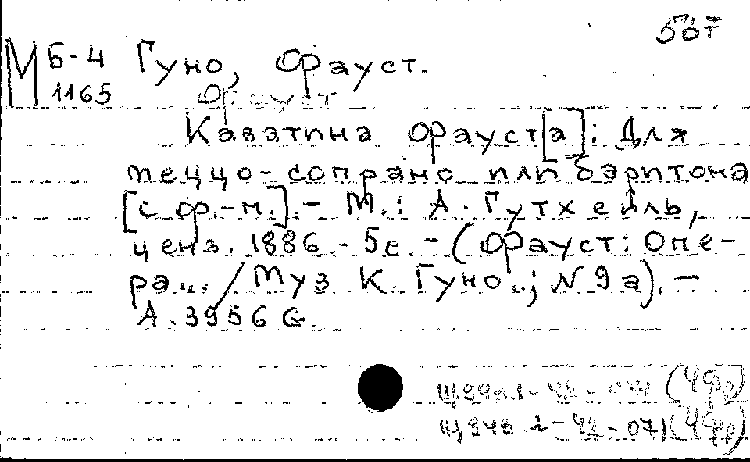 50т
М Б-4 Гуно, Фауст.
1165 Фауст
Каватина Фауст[а]: Для
меццо-сопрано или баритона
[с ф.-п.]. - М.: А. Гутхейль,
ценз. 1886. - 5с. - (Фауст: Опе-
ра... / Муз К. Гуно..; N 9а). -
А. 3956 G.